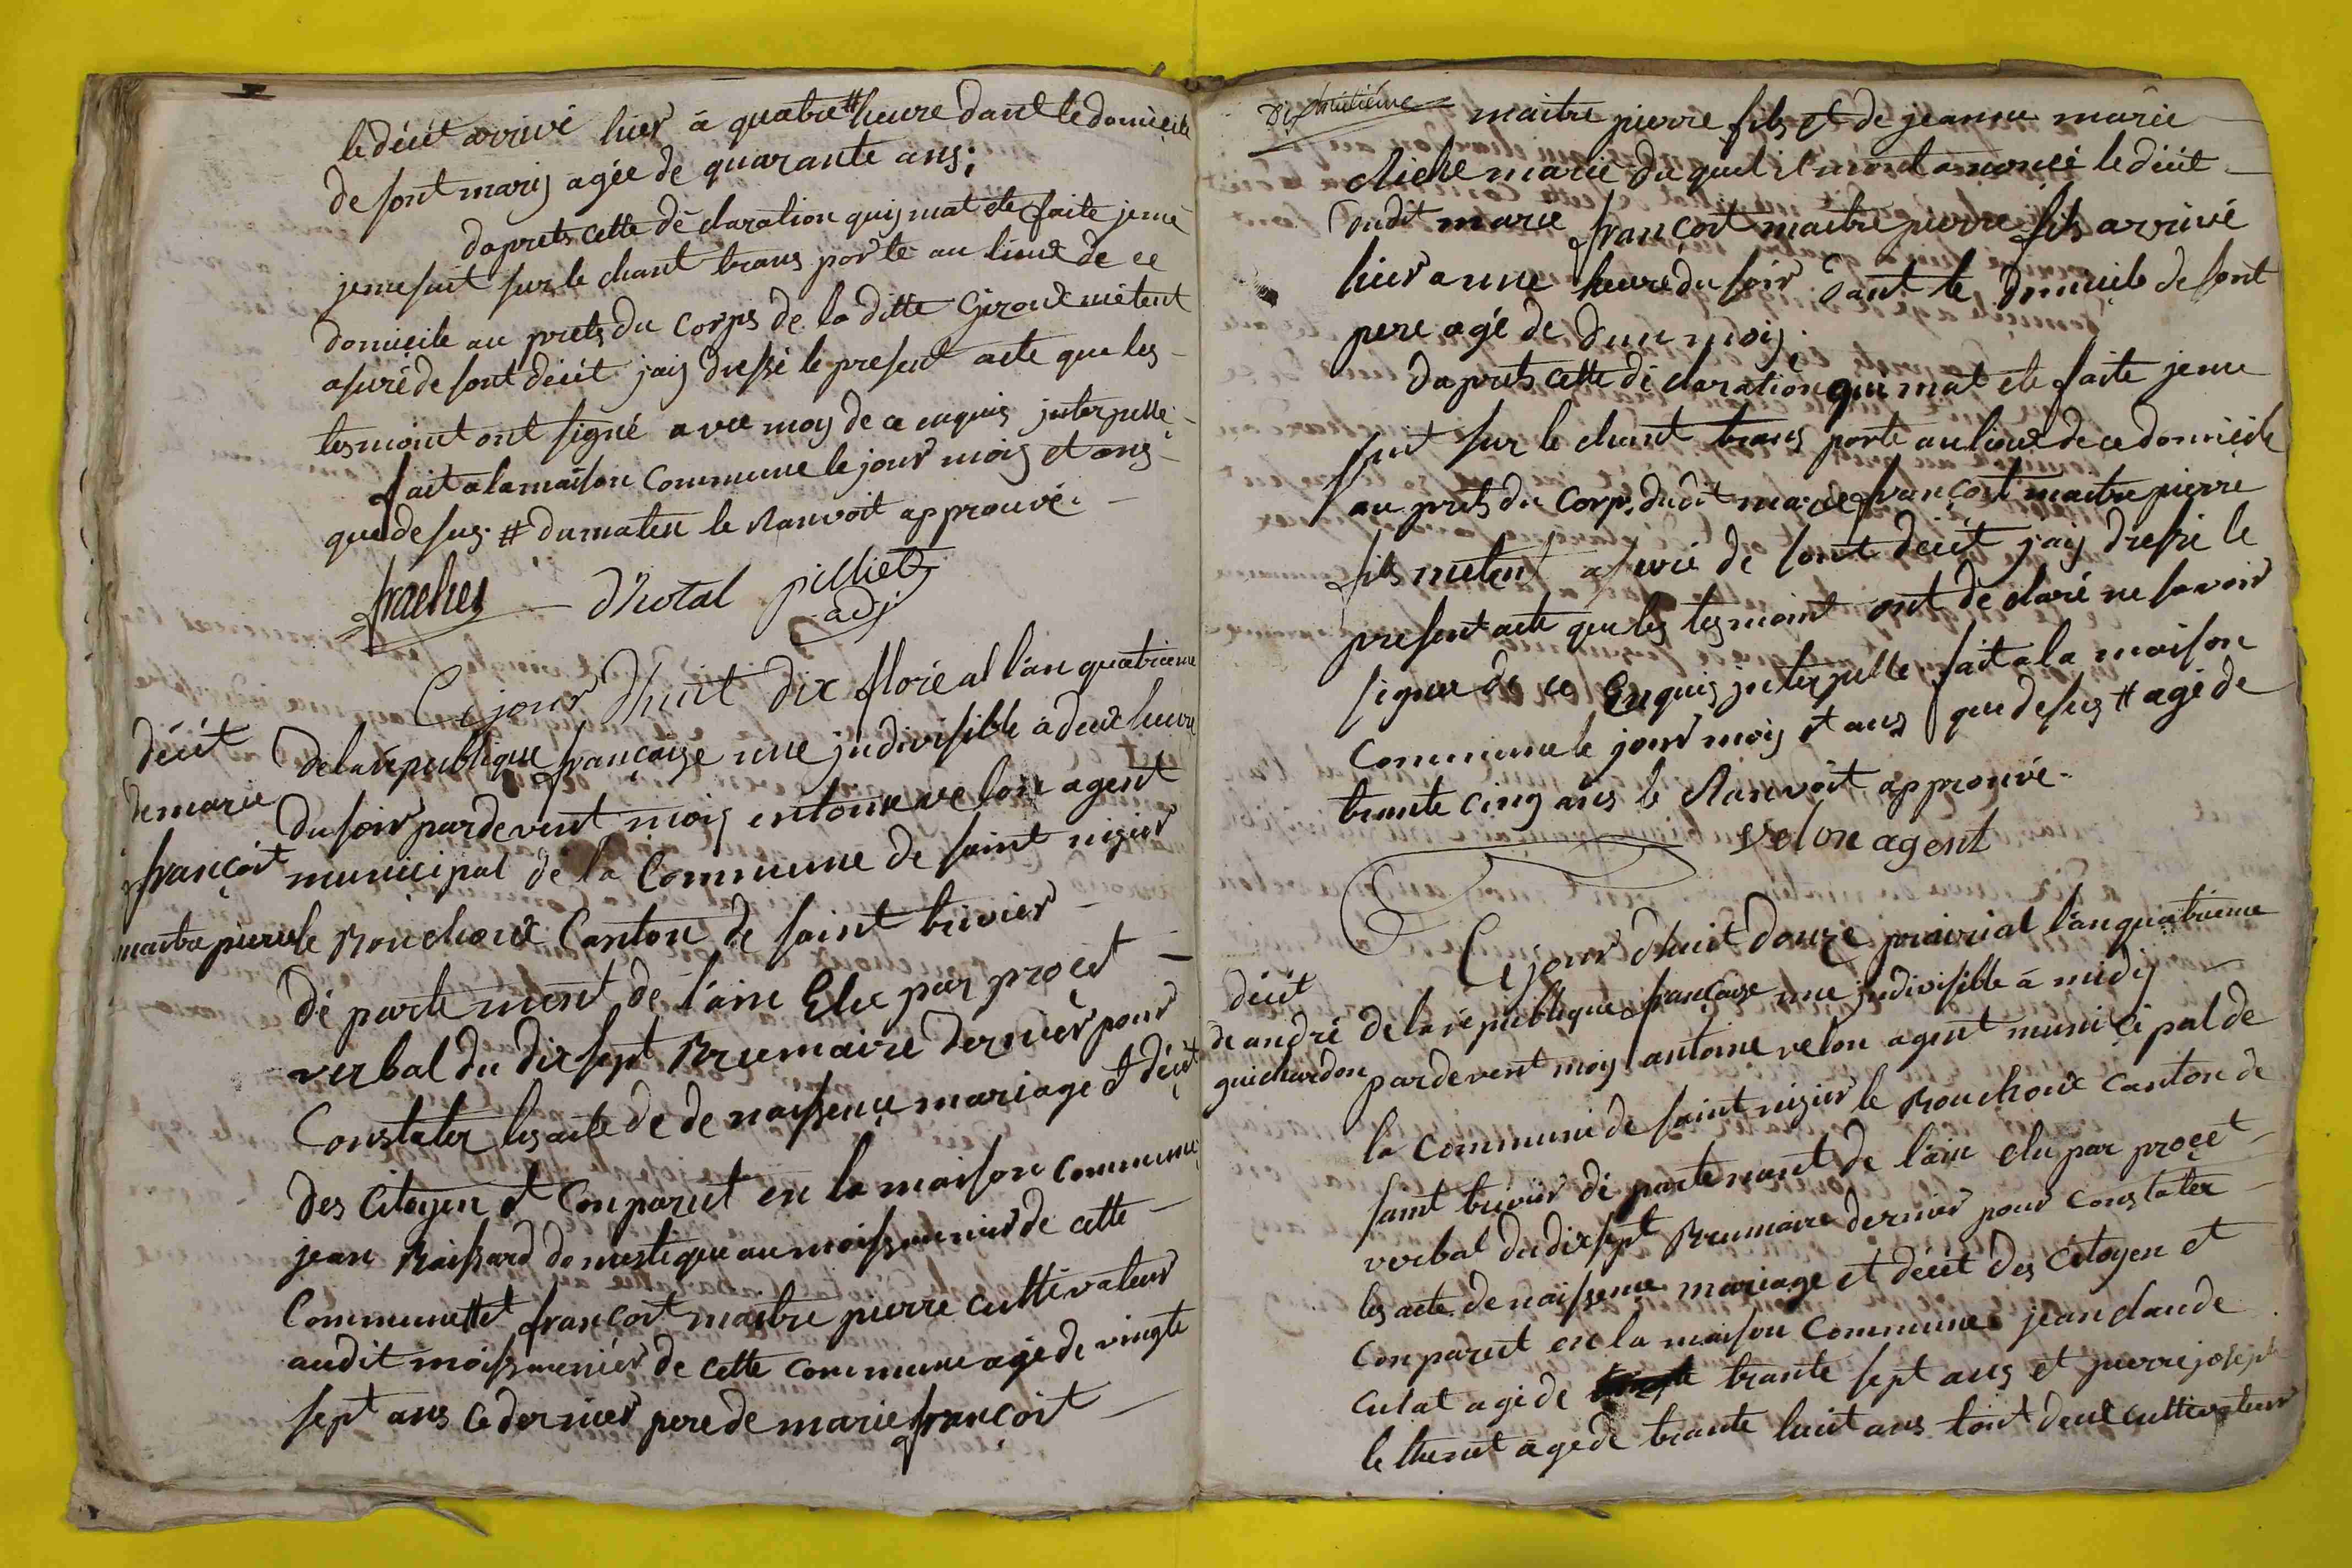 le décét arrivé hier à quatre # heure dant le domicile
de sont mary agée de quarante ans;
daprets cette déclaration quy mat ete faite jeme
jeme suit sur le chant trans porté au lieux de ce
domicile au prets du corps de la ditte Giroux métent
asuré de sont décét jay dressé le present acte que les
tesmoint ont signé avec moy de ce enquis interpellé
fait a la maison Commune le jour mois et ans
que desus. # du maten le Ranvoit approuvé.
frachet Dhotal pilliet
adj
Ce jour Dhuit dix floréal l'an quatrieme
décét
de marie
françoit
maitre pierre
de la république françaize une indivisible à deux heure
du soir pardevent moy entoine velon agent
municipal de la Commune de saint nizier
le Bouchoux Canton de saint trivier
dé parte ment de l'ain Elu par procet
verbal du dix sept Brumaire dernier pour
Constater les acte de de naissence mariage et décét
des Citoyen et Conparut en la maison commune
jean Raissard domestique au moissonnier de cette
Commune # et françoit maitre pierre cultivateur
audit moissonnier de cette commune agé de vingte
sept ans ce dernier pere de marie françoit
Dix huitiéme
maitre pierre fils et de jeanne marie
Michel marie du quel il mont anoncé le décét
dudit marie françoit maitre pierre fils arrivé
hier a une heure du soir dant le domicile de sont
pere agé de dun mois.
daprets cette dé claration que mat ete faite jeme
suit sur le chant trans porté au lieux de ce domicile
au prets du corps dudit marie françoit maitre pierre
fils métent asuré de sont décét jay dressé le
present acte que les tesmoint ont dé claré ne savoir
signer de ce Enquis interpellé fait a la maison
Commune le jour mois et ans que desus # agé de
trante cinq ans le Ranvoit approuvé.
velon agent
Ce jour Dhuit douze prairial l'an quatrieme
décét
de andré
guichardon
de la république françaize une indivisible à midy
pardevent moy antoine velon agent muni ci pal de
la commune de saint nizier le Bouchoux canton de
saint trivier dé partement de l'ain elu par procet
verbal du dix sept Brumaire dernier pour constater
les acte de naissence mariage et décét des Citoyen et
Conparut en la maison Commune jean claude
Culat agé de trante sept ans et pierre joseph
le thenet agé de trante huit ans tout deux cultivateur